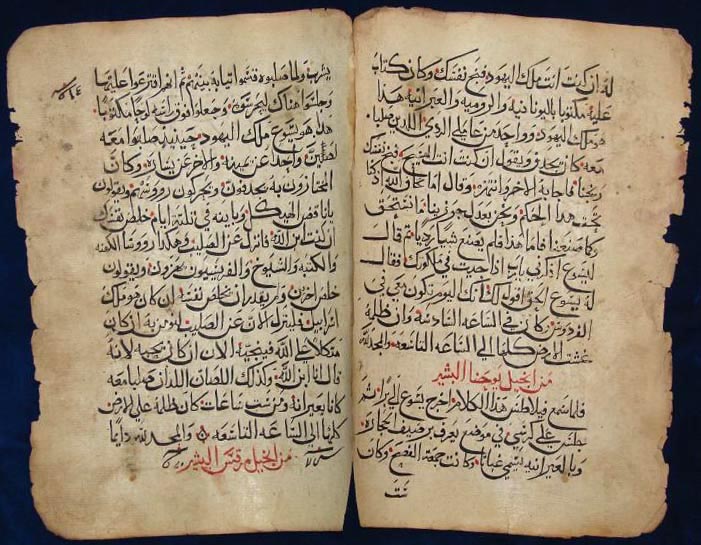 له ان كنت انت ملك اليهود فنج نفسك وكان كتاب
عليه مكتوبا باليونانية والرومية والعبرانية هذا
هو ملك اليهود وواحد من عاملي الردي اللذين صلبا
معه كان يجدف ويقول ان كنت انت المسيح فنج نفسك
ونجنا فاجابه الاخر وانتهره وقال اما تخاف الله اذ كنا
تحت هذا الحكم ونحن بعدل جوزينا بما نستحق
وكما صنعنا فاما هذا فلم يصنع شيا رديا ثم قال
ليسوع اذكرني يارب اذا جيت في ملكوتك فقال
له يسوع الحق اقول لك انك اليوم تكون معي في
الفردوس وكان في الساعه السادسه وان ظلمة
غشت الارض كلها الى الساعه التاسعه والمجد لله
من انجيل يوحنا البشير
فلما سمع فيلاطس هذا الكلام اخرج يسوع الى برا ثم
جلس على كرسي في موضع يعرف برصيف الحجارة
وبالعبرانيه يسمى غباثا وكانت جمعة الفصح وكان
يشرب ولما صلبوه قسموا ثيابه بينهم ثم اقترعوا عليها
وجلسوا هناك ليحرسوه وجعلوا فوق راسه لوحا مكتوبا
هذا هو يسوع ملك اليهود حينيذ صلبوا معه
لصين واحد عن يمينه والاخر عن يساره وكان
المجتازون به يجدفون ويحركون رووسهم ويقولون
يا ناقض الهيكل وبانيه في ثلثة ايام خلص نفسك
ان كنت ابن الله فانزل عن الصليب وهكذا رووسا الكهنة
والكتبه والشيوخ والفريسيون يهزون ويقولون
خلص اخرين ولم يقدر ان يخلص نفسه ان كان هو ملك
اسراييل فلينزل الان عن الصليب لنومن به ان كان
متكلا على الله فينجيه الان ان كان يحبه لانه
قال انا ابن الله وكذلك اللصان اللذان صلبا معه
كانا يعيرانه ومن ست ساعات كان ظلمة على الارض
كلها الى الساعه التاسعه والمجد لله دايما
من انجيل مرقس البشير